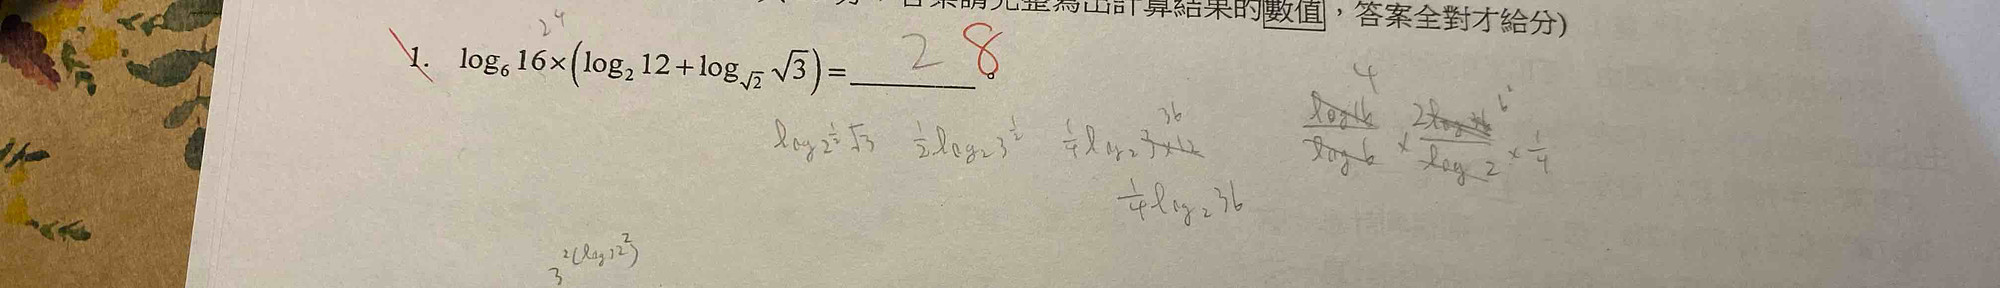 答案請完整寫出計算結果的數值，答案全對才給分)
2⁴
1. log₆ 16×(log₂ 12+log_√2 √3)=______。 2 8
log_2^½ √3 ½log₂3^½ ¼log₂3×12 36 log16/log6 4 × 2log36/log2 6² × ¼
¼log₂36
3^2(log12²)